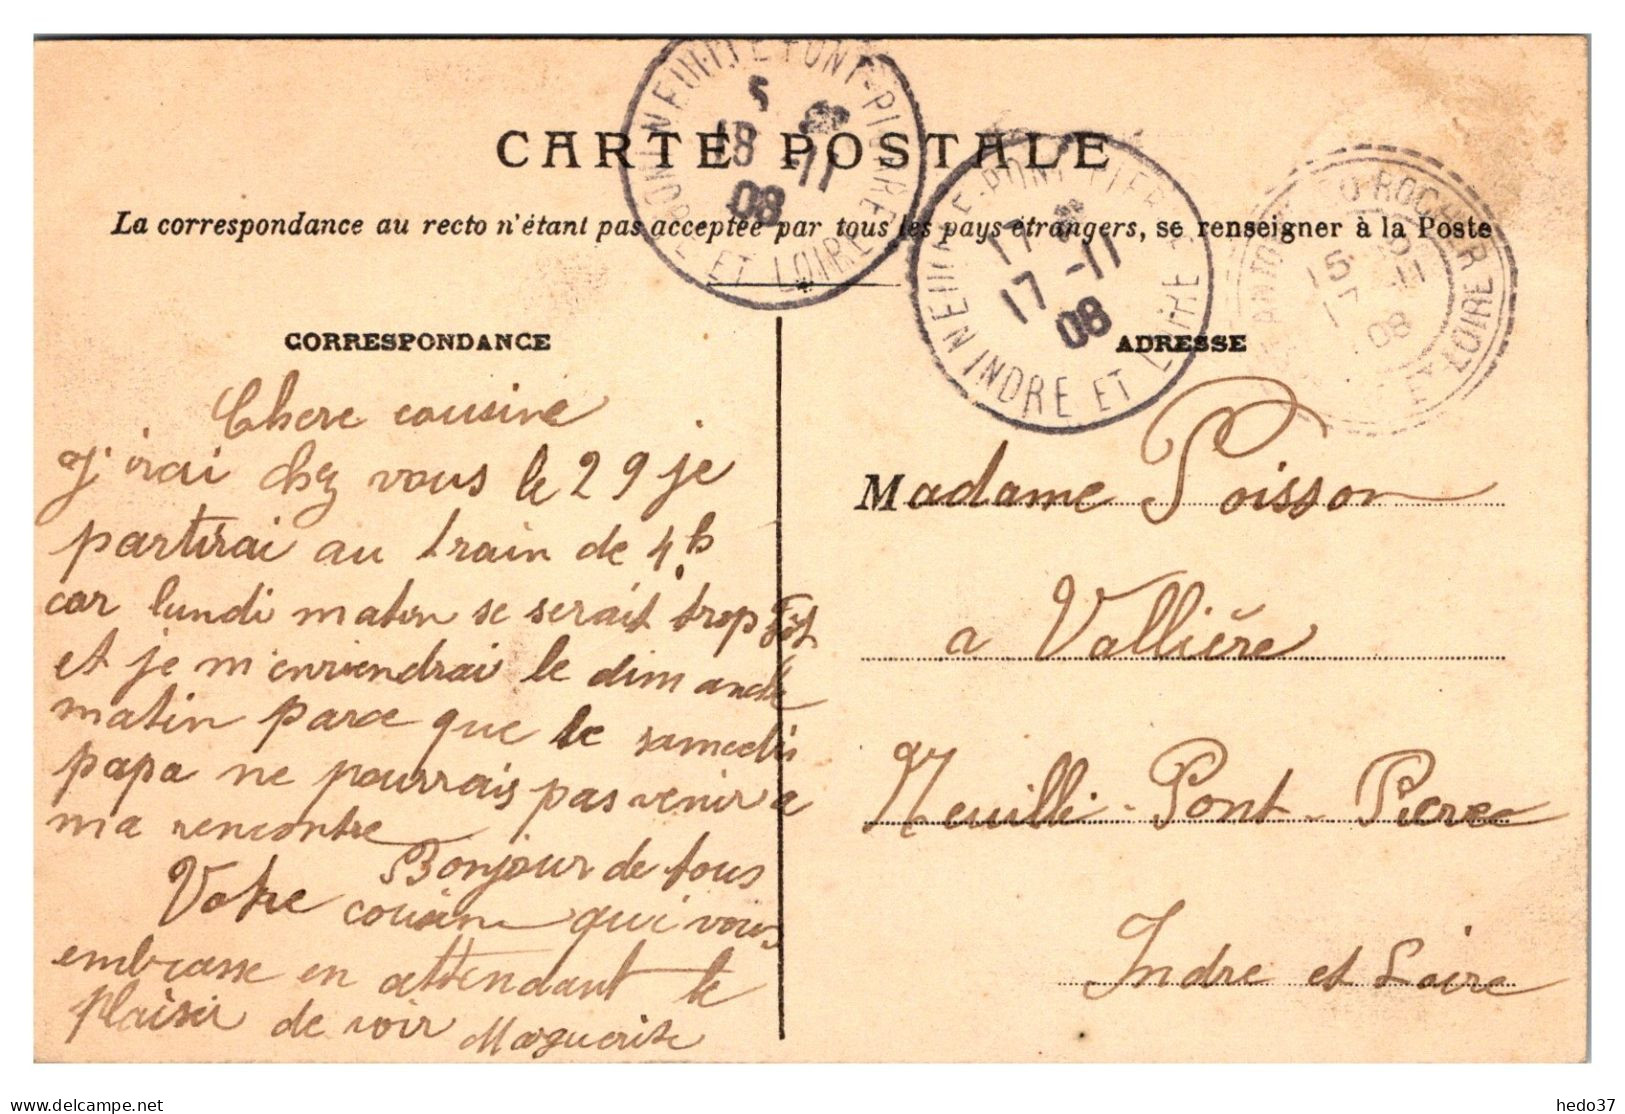 CARTE POSTALE
La correspondance au recto n'étant pas acceptée par tous les pays étrangers, se renseigner à la Poste
NEUILLE PONT-PIERRE
INDRE ET LOIRE
5
18 -11
08
NEUILLE-PONT-PIERRE
INDRE ET LOIRE
17
17 -11
08
DU ROCHER
ET LOIRE
15
17 11
08
CORRESPONDANCE
Chere cousine
J'irai chez vous le 29 je
partirai au train de 4h
car lundi matin se serait trop tôt
et je m'enviendrai le dimanche
matin parce que le samedis
papa ne pourrais pas venir a
ma rencontre
Bonjour de tous
Votre cousin qui vous
embrasse en attendant le
plaisir de voir Marguerite
ADRESSE
Madame Poisson
a Vallière
Neuilli-Pont-Pierre
Indre et Loire
delcampe.net
hedo37